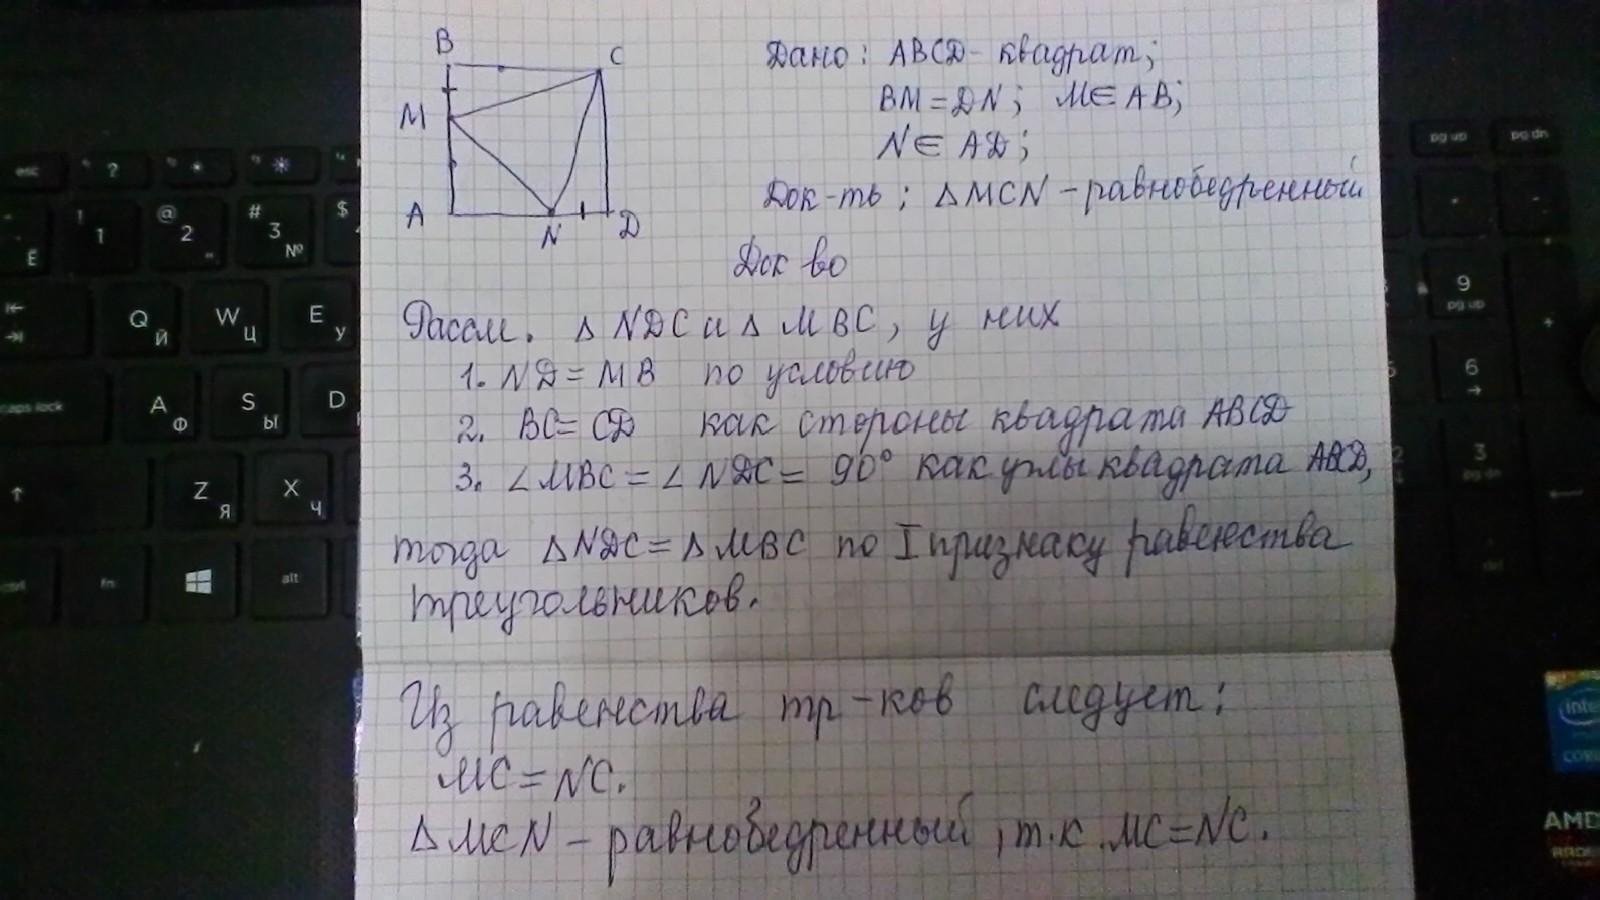 B
C
M
A
N
D
Дано: ABCD - квадрат;
BM = DN; M∈AB;
N∈AD;
Док-ть: ΔMCN - равнобедренный
Док во
Рассм. ΔNDC и ΔMBC, у них
1. ND = MB по условию
2. BC = CD как стороны квадрата ABCD
3. ∠MBC = ∠NDC = 90° как углы квадрата ABCD,
тогда ΔNDC = ΔMBC по I признаку равенства
треугольников.
Из равенства тр-ков следует:
MC = NC.
ΔMCN - равнобедренный, т.к. MC = NC.
esc
?
pg up
pg dn
!
1
@
2
"
#
3
№
$
Ё
Q
Й
W
Ц
E
У
9
pg up
caps lock
A
Ф
S
Ы
D
6
Z
Я
X
Ч
3
pg dn
fn
alt
del
intel
CORE
AMD
RADEON